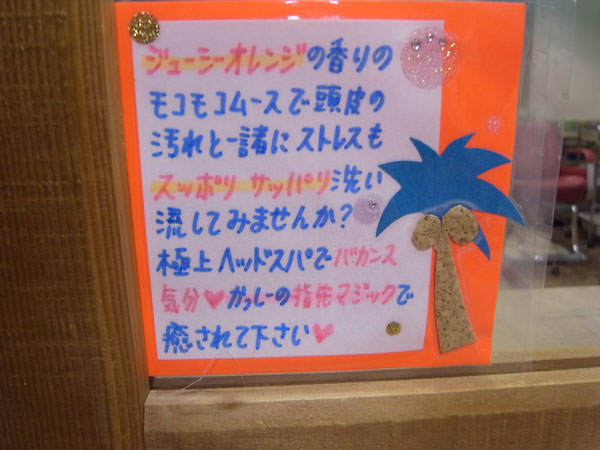 ジューシーオレンジの香りの
モコモコムースで頭皮の
汚れと一諸にストレスも
スッポリサッパリ洗い
流してみませんか?
極上ヘッドスパでバカンス
気分♥がっしーの指先マジックで
癒されて下さい♥